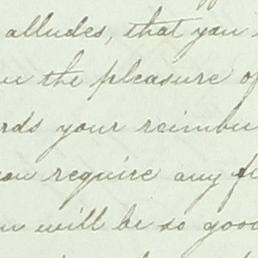 alludes, that you
the pleasure of
rds your reimbu
ou require any fu
will be so good